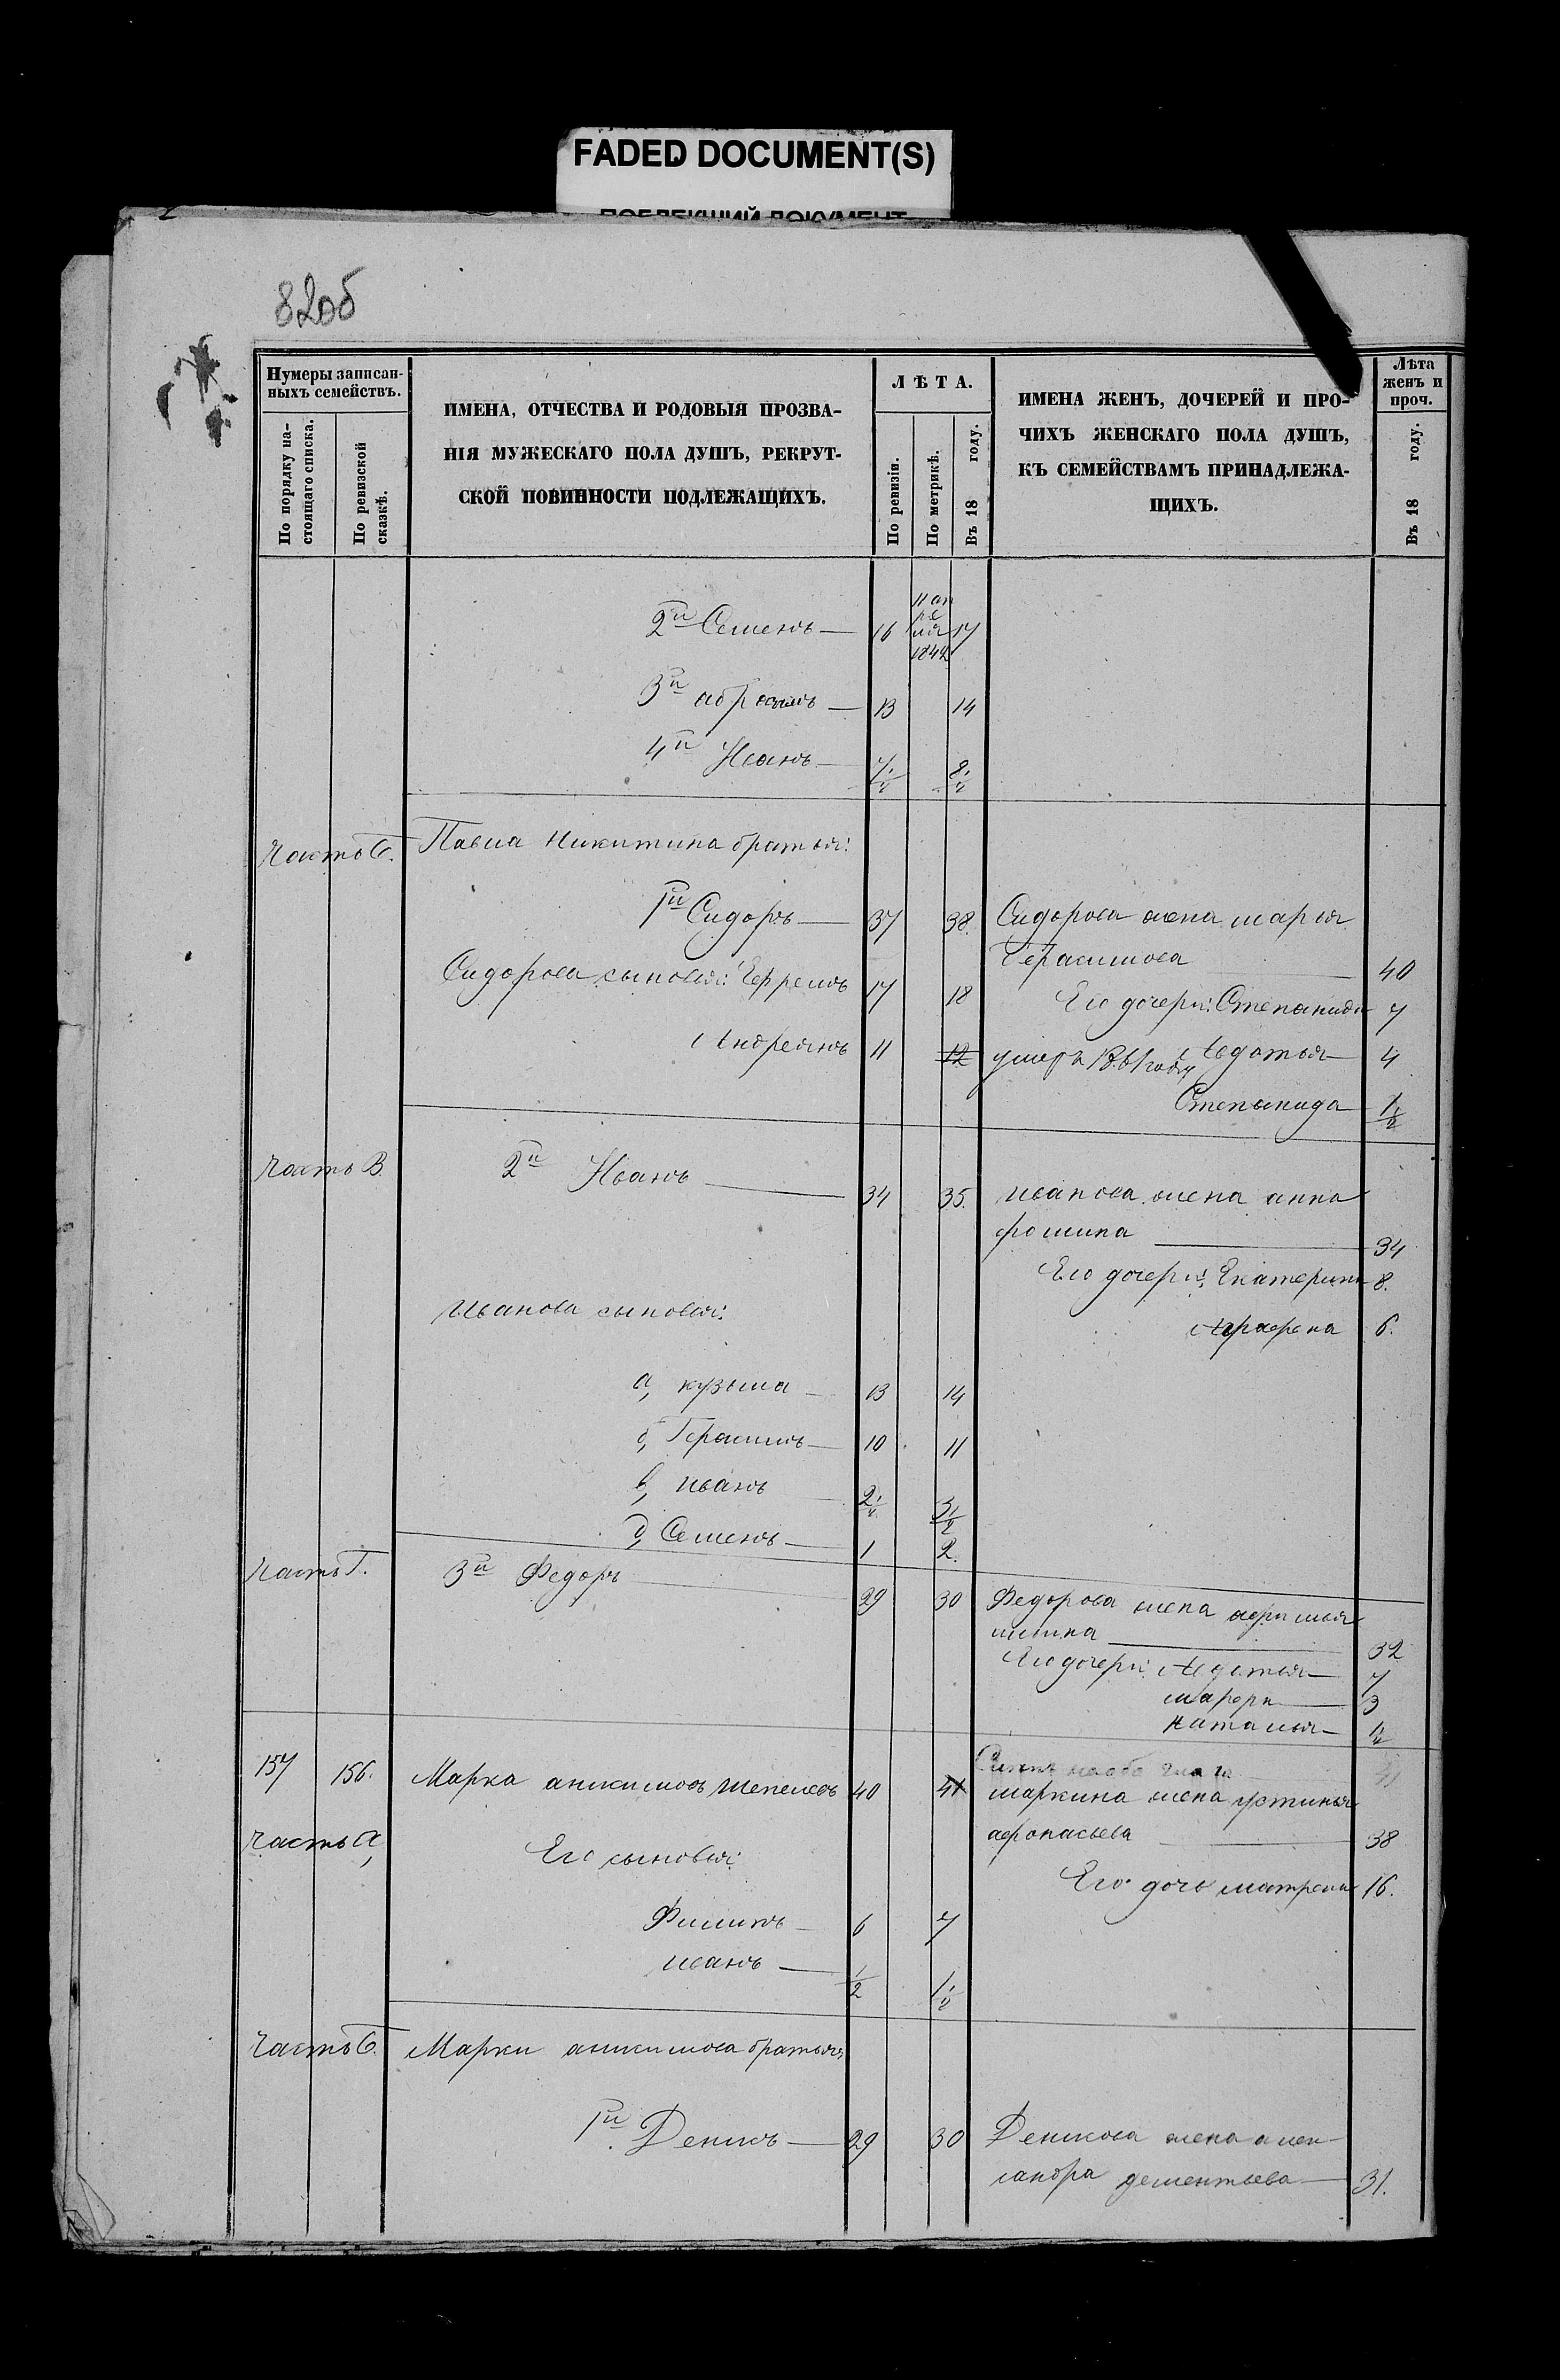 FADED DOCUMENT(S)
ПОБЛЕКШИЙ ДОКУМЕНТ
82об
Нумеры записан-
ныхъ семействъ.
По порядку на-
стоящаго списка.
По ревизской
сказкѣ.
ИМЕНА, ОТЧЕСТВА И РОДОВЫЯ ПРОЗВА-
НІЯ МУЖЕСКАГО ПОЛА ДУШЪ, РЕКРУТ-
СКОЙ ПОВИННОСТИ ПОДЛЕЖАЩИХЪ.
ЛѢТА.
По ревизіи.
По метрикѣ.
Въ 18 году.
ИМЕНА ЖЕНЪ, ДОЧЕРЕЙ И ПРО-
ЧИХЪ ЖЕНСКАГО ПОЛА ДУШЪ,
КЪ СЕМЕЙСТВАМЪ ПРИНАДЛЕЖА-
ЩИХЪ.
Лѣта
женъ и
проч.
Въ 18 году.
2й Семенъ 16 11 ап
ре
ля 17
1842
3й 13 14
4й Иванъ 7½ 8½
Часть Б. Павла Никитина братья:
1й Сидоръ 37 38. Сидорова жена марья
Герасимова 40
Сидорова сыновья: Ефремъ 17 18 Его дочери: Степанида 7
Андреянъ 11 12 умеръ 1861 году Авдотья 4
Степанида 1½
Часть В. 2й Иванъ 34 35. иванова жена анна
фомина 34
Его дочери: Екатерина 8.
Иванова сыновья: Аграфена 6.
а, кузьма 13 14
б, Герасимъ 10 11
в, иванъ 2½ 3½
Семенъ 1 2.
Часть Г. 3й Федоръ 29 30 Федорова жена афимья
ильина 32
Его дочери: Авдотья 7
марфа 3
наталья ½
157 156. Марка анкимовъ Шепелевъ 40 41 маркина жена устинья
афонасьева 38
Часть а, Его сыновья: Его дочь матрена 16.
Филипъ 6 7
иванъ ½ 1½
Часть Б. Марки анкимова братья,
1й Денисъ 29 30 Денисова жена алек-
сандра дементьева 31.